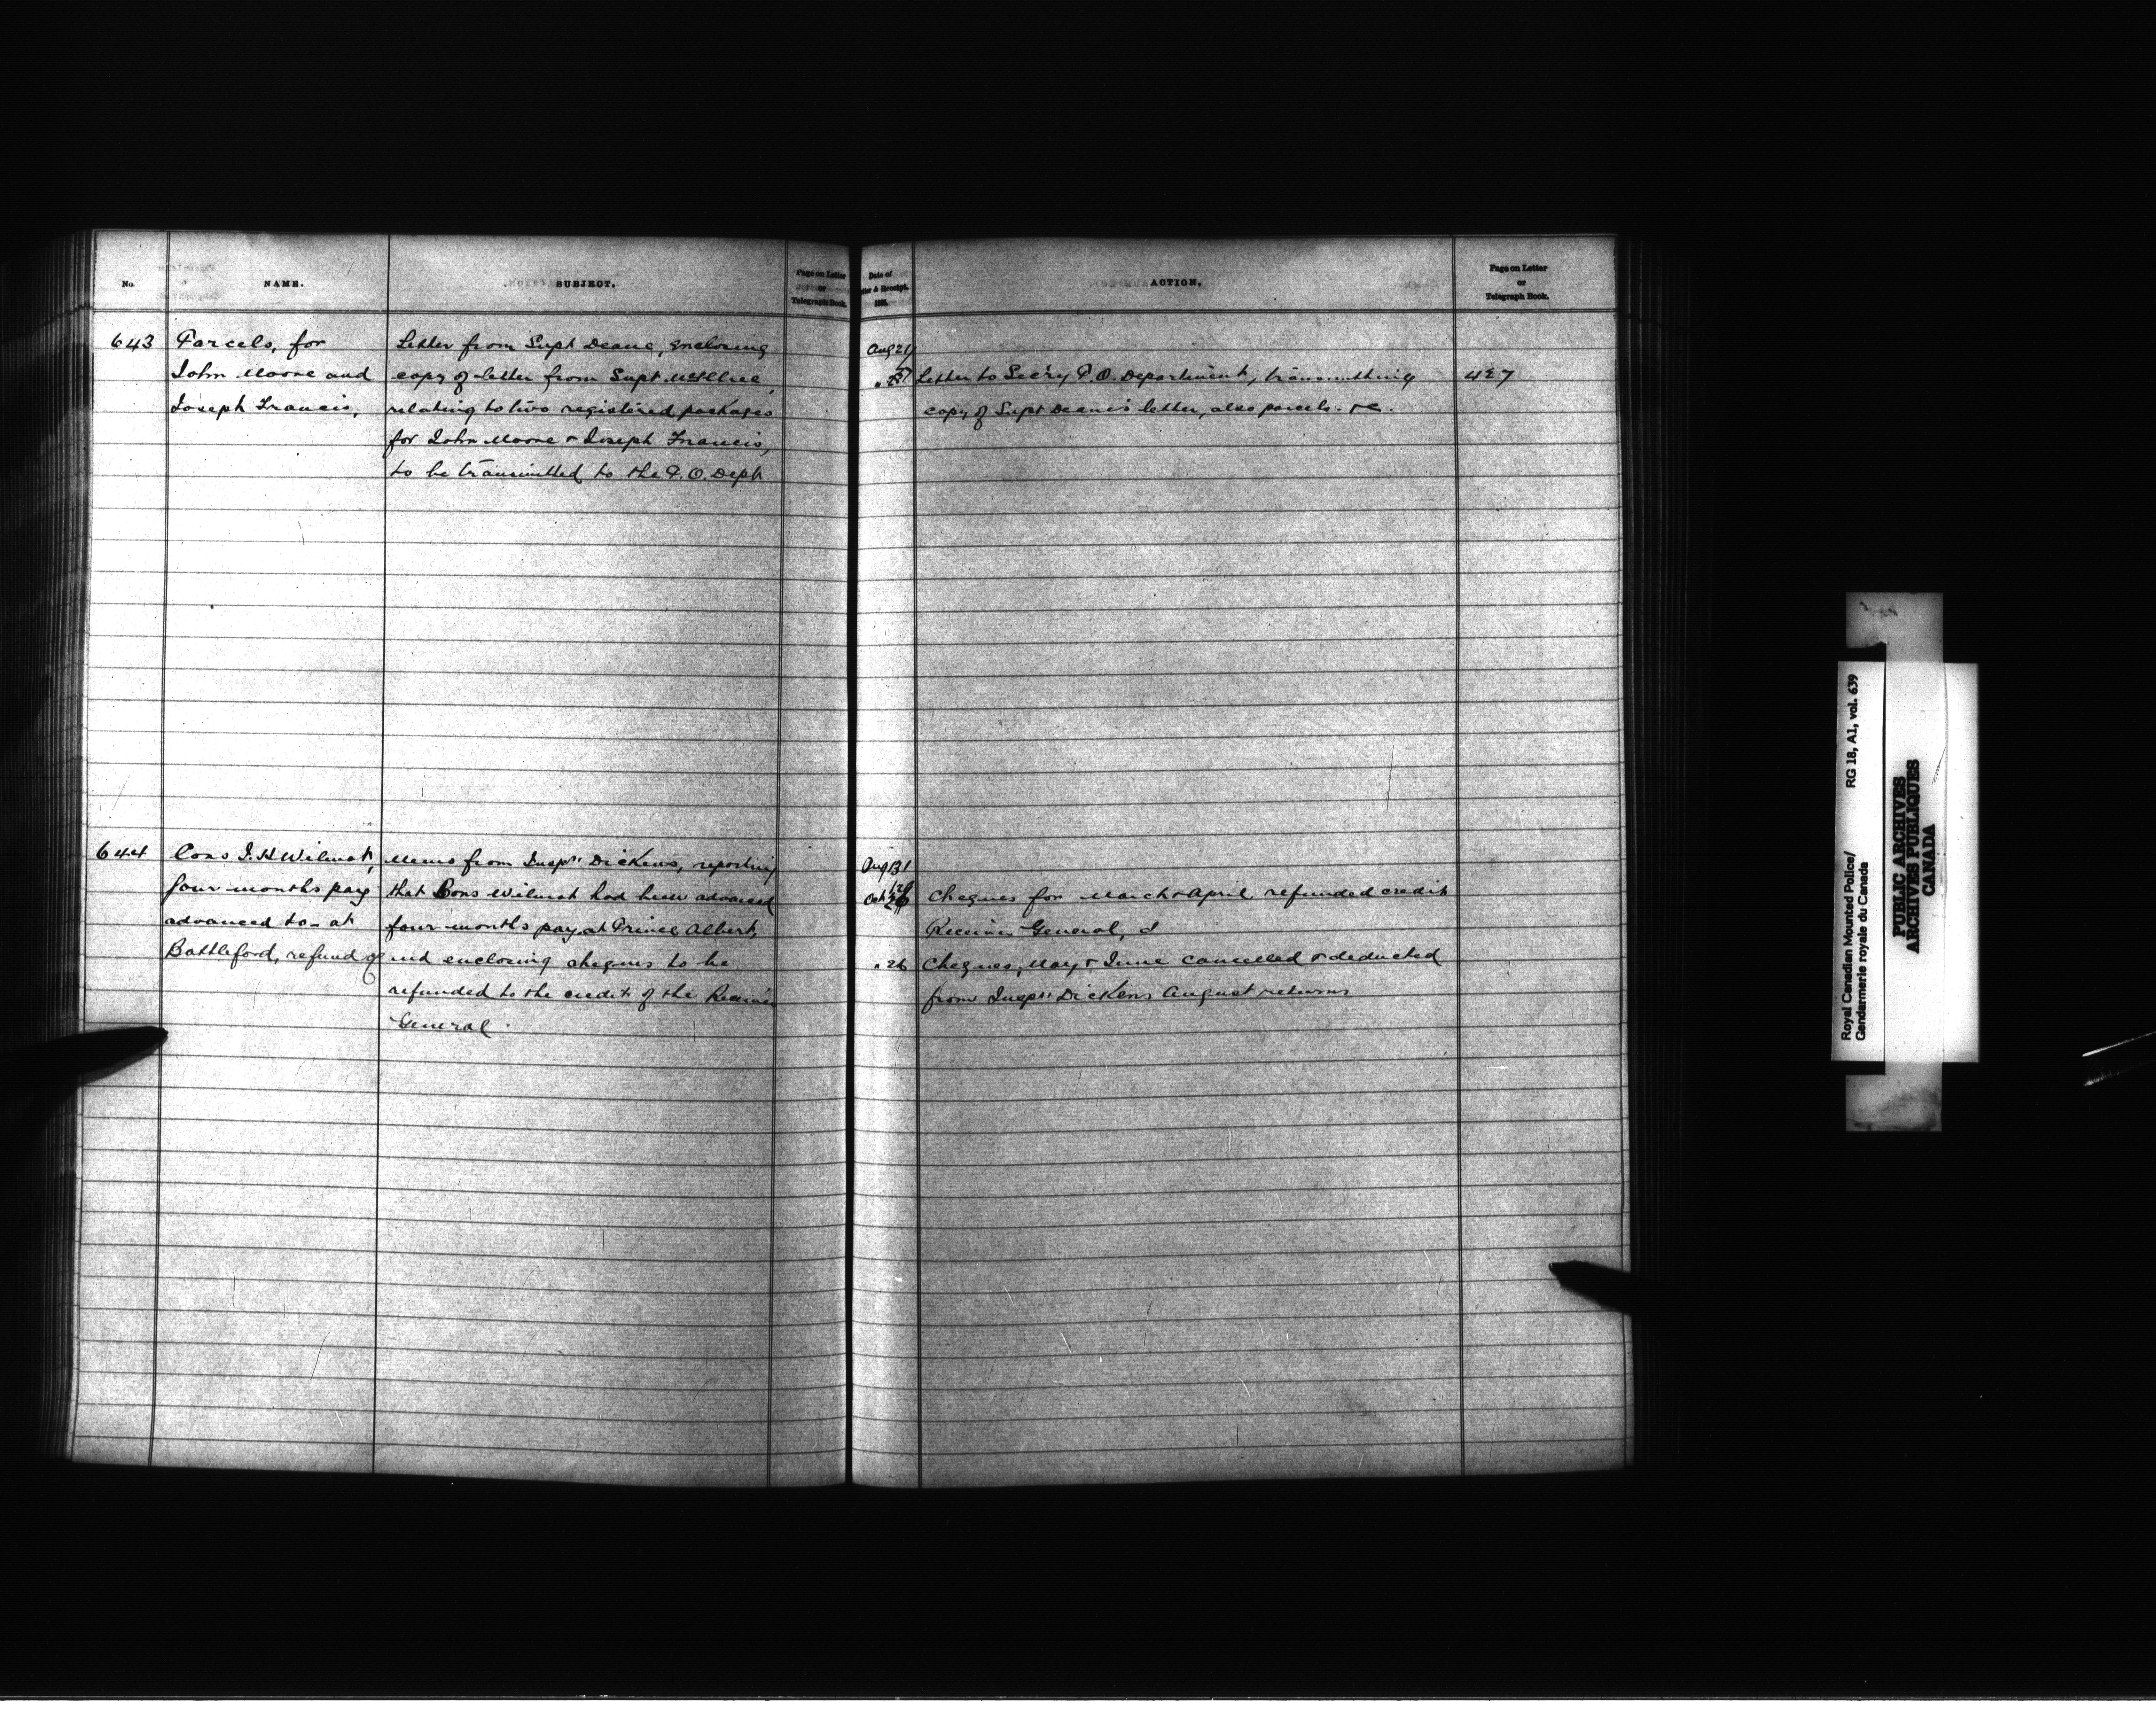 No.
NAME.
SUBJECT.
Page on Letter
or
Telegraph Book.
Date of
& Receipt.
ACTION.
Page on Letter
or
Telegraph Book.
643
Parcels, for
John Moore and
Joseph Francis,
Letter from Supt Deane, enclosing
copy of letter from Supt McIllree,
relating to two registered packages
for John Moore & Joseph Francis,
to be transmitted to the P.O. Dept
Aug 21
Letter to Secr'y P.O. Department, transmitting
copy of Supt Deane's letter, also parcels. &c.
427
644
Cons J. H Wilmot,
four months pay
advanced to - at
Battleford, refund of
Memo from Insptr Dickens, reporting
that Cons Wilmot had been advanced
four months pay at Prince Albert,
and enclosing cheques to be
refunded to the credit of the Receiver
General.
Aug 31
Oct
Cheques for March & April refunded credit
Receiver General,
" 26
Cheques, May & June cancelled & deducted
from Insptr Dickens August returns
Royal Canadian Mounted Police/
Gendarmerie royale du Canada
RG 18, A1, vol. 639
PUBLIC ARCHIVES
ARCHIVES PUBLIQUES
CANADA